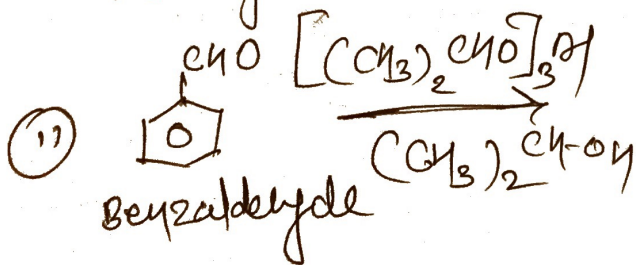 CHO [(CH₃)₂CHO]₃Al
11
(CH₃)₂CH-OH
Benzaldehyde